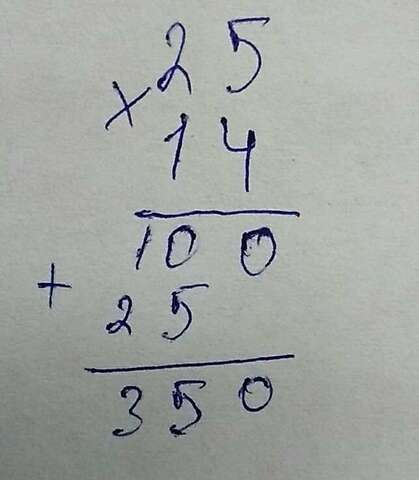 25
× 14
100
+ 25
350